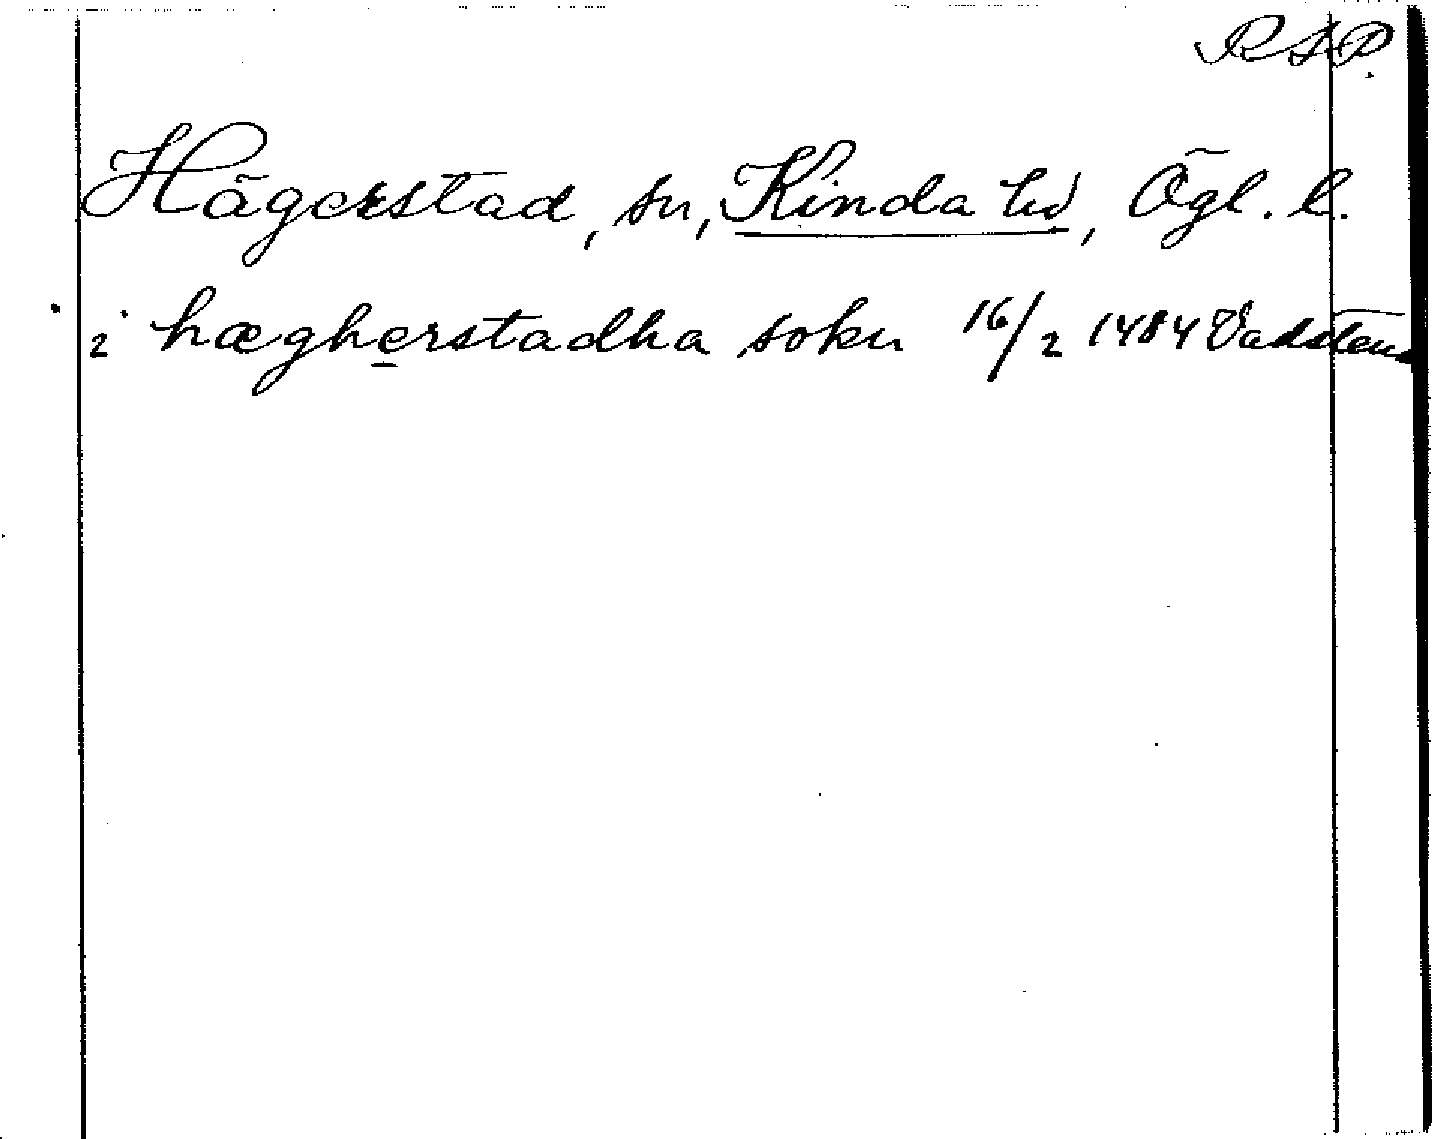 RAP.
Hägerstad, sn, Kinda hd, Ögl. l.
i hægherstadha sokn 16/2 1484 Vadstena